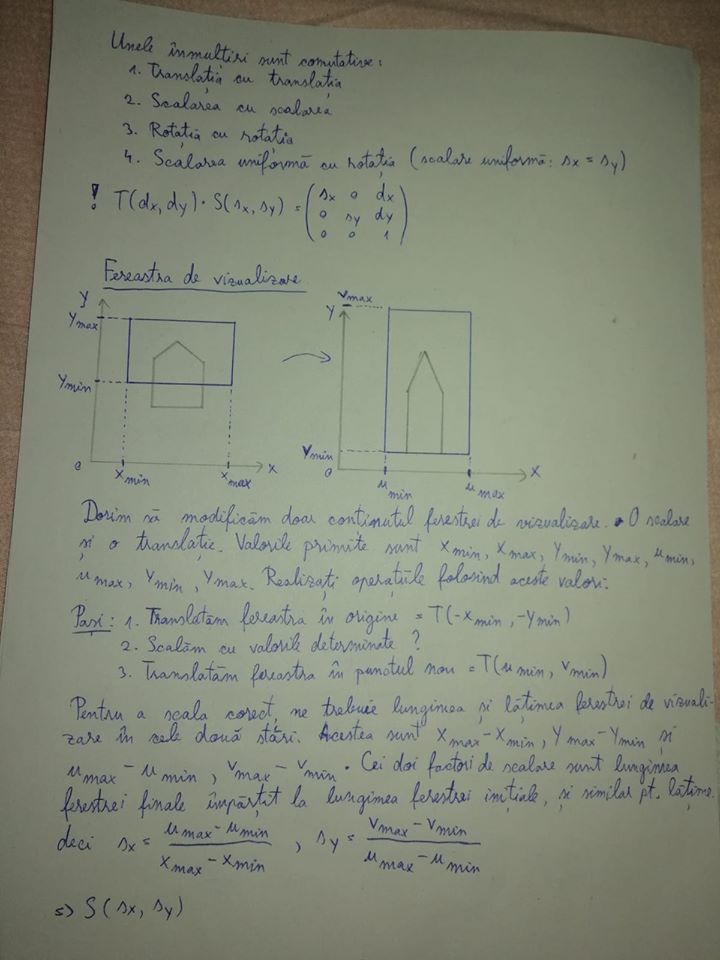 Unele înmulțiri sunt comutative:
1. Translația cu translația
2. Scalarea cu scalarea
3. Rotația cu rotația
4. Scalarea uniformă cu rotația (scalare uniformă: sx = sy)
! T(dx, dy) · S(sx, sy) = ( sx 0 dx
0 sy dy
0 0 1 )
Fereastra de vizualizare
y
ymax
ymin
0 xmin xmax x
vmax
y
vmin
0 umin umax x
Dorim să modificăm doar conținutul ferestrei de vizualizare. O scalare
și o translație. Valorile primite sunt xmin, xmax, ymin, ymax, umin,
umax, vmin, vmax. Realizați operațiile folosind aceste valori.
Pași: 1. Translatăm fereastra în origine = T(-xmin, -ymin)
2. Scalăm cu valorile determinate ?
3. Translatăm fereastra în punctul nou = T(umin, vmin)
Pentru a scala corect, ne trebuie lungimea și lățimea ferestrei de vizuali-
zare în cele două stări. Acestea sunt xmax - xmin, ymax - ymin și
umax - umin, vmax - vmin. Cei doi factori de scalare sunt lungimea
ferestrei finale împărțit la lungimea ferestrei inițiale, și similar pt. lățime.
deci sx = (umax - umin) / (xmax - xmin), sy = (vmax - vmin) / (umax - umin)
=> S(sx, sy)